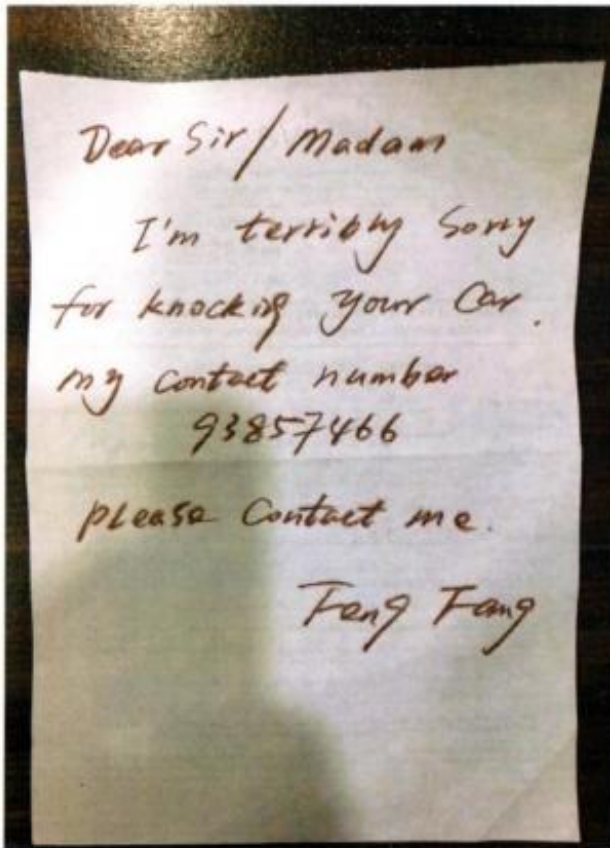 Dear Sir / Madam
I'm terribly Sorry
for knocking your Car.
my contact number
93857466
please Contact me.
Feng Fang